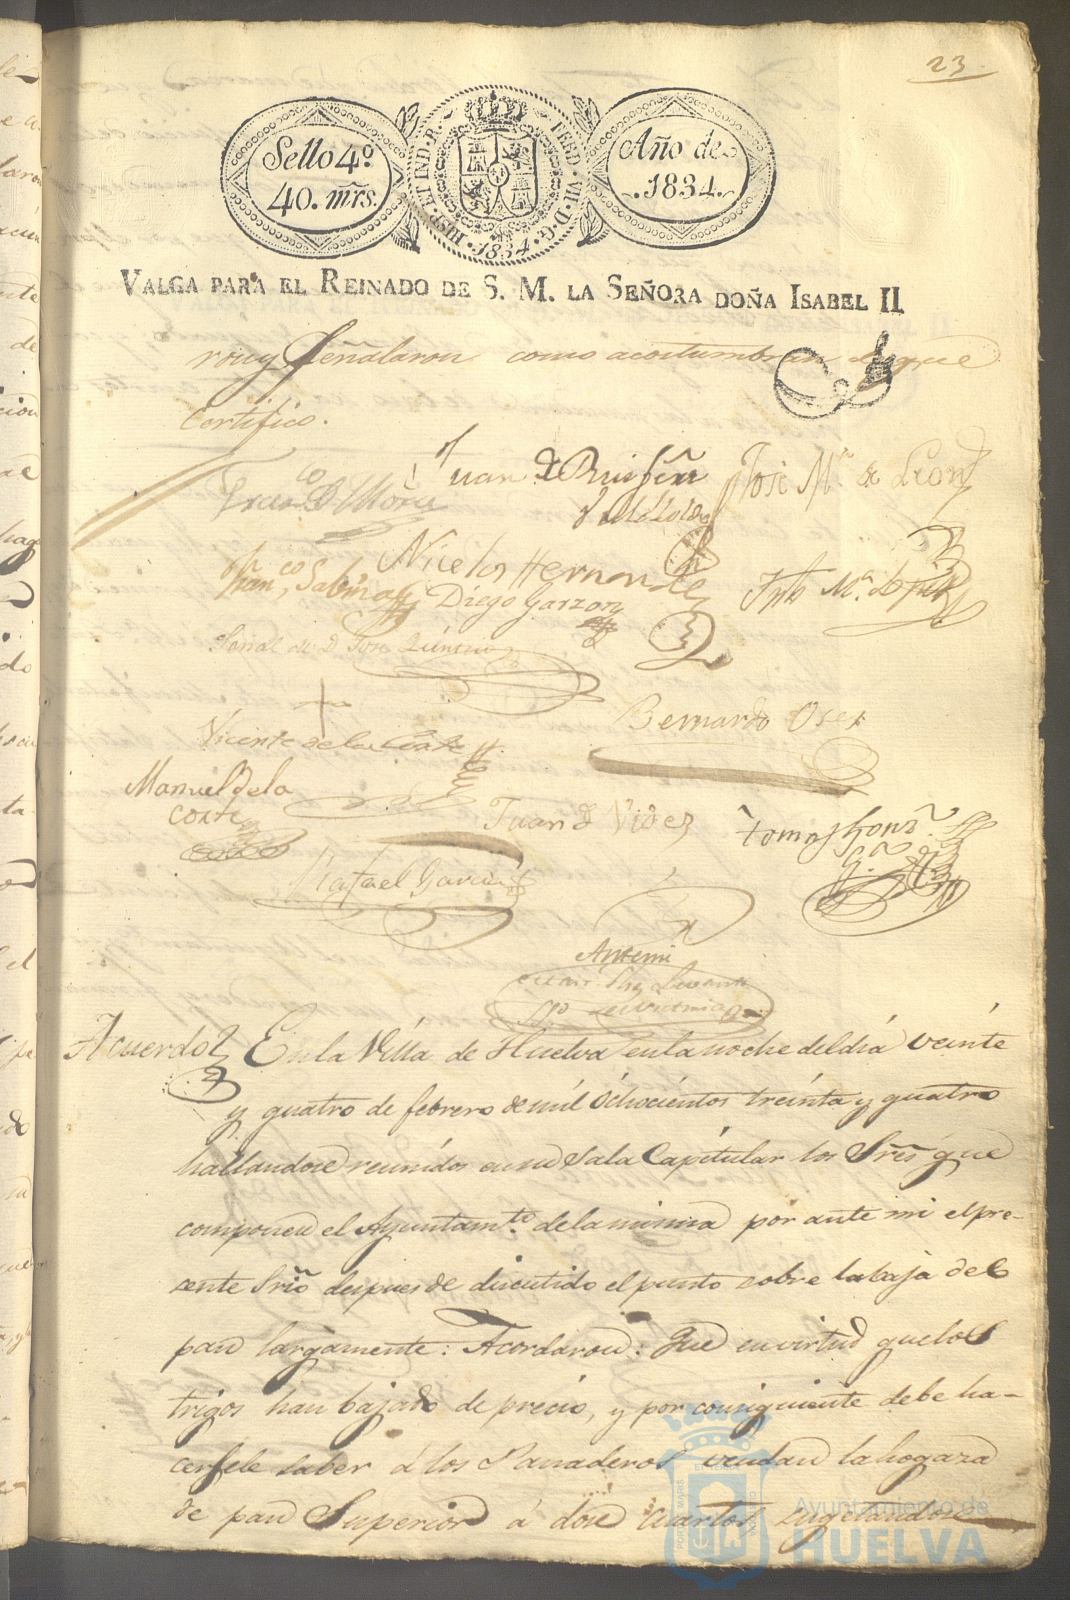 23
Sello 4º.
40. mrs.
HISP. ET IND. R. FERD. VII. D. G. 1834.
Año de
1834.
VALGA PARA EL REINADO DE S. M. LA SEÑORA DOÑA ISABEL II.
ron y Señalaron como acostumbran de que
Certifico.
Juan
José Mª. de Leon
Nicolas Hernandez
Diego Garzon
Señal de D. José
Vicente de la Corte
Bernardo
Manuel de la
Corte
Juan de Videz
Rafael Garcia
Antemi
Acuerdo En la Villa de Huelva en la noche del dia veinte
y quatro de febrero de mil ochocientos treinta y quatro
hallandose reunidos en su Sala Capitular los Sres. que
componen el Ayuntamto. de la misma por ante mi el pre-
sente Srio despues de discutido el punto sobre la baja del
pan largamente: Acordaron: Que en virtud que los
trigos han bajado de precio, y por consiguiente debe ha-
cersele saber á los Panaderos vendan la hogaza
de pan Superior á doce cuartos sugetandose
Ayuntamiento de
HUELVA